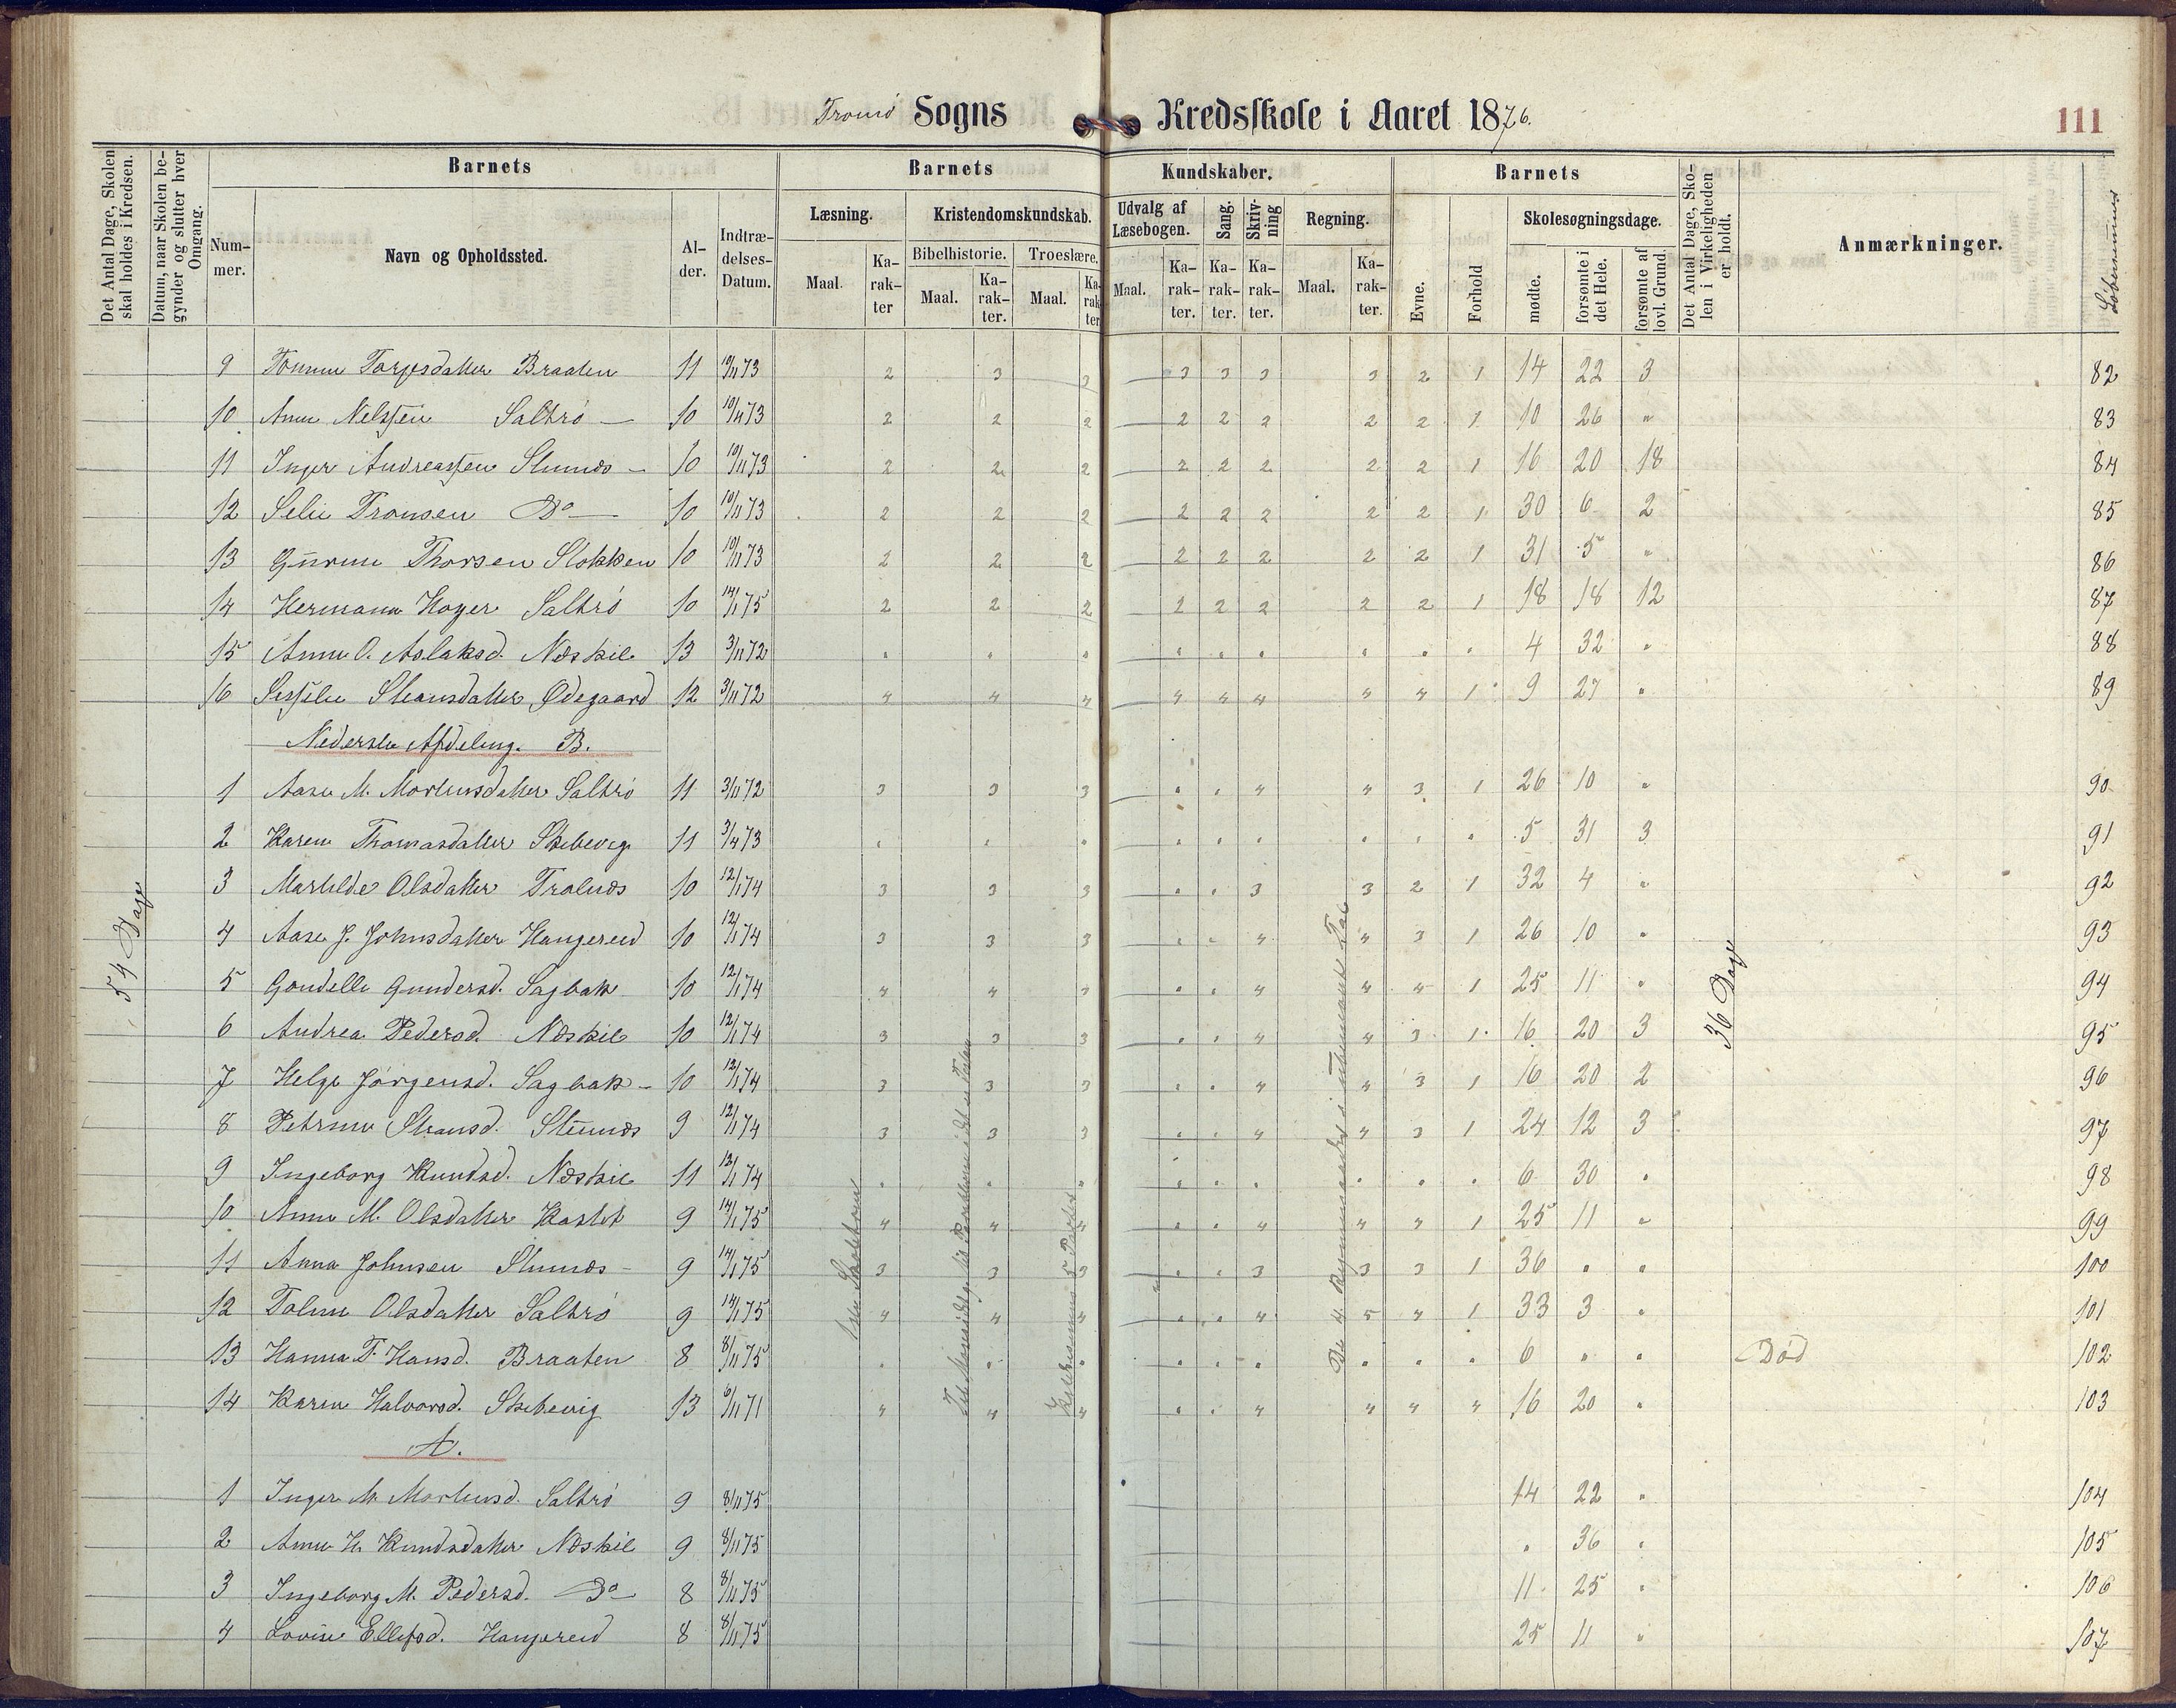 Tromö Sogns Kredsskole i Aaret 1876. 111
Det Antal Dage, Skolen skal holdes i Kredsen.
Datum, naar Skolen begynder og slutter hver Omgang.
Barnets
Nummer.
Navn og Opholdssted.
Alder.
Indtrædelses-Datum.
Barnets Kundskaber.
Læsning.
Maal.
Karakter
Kristendomskundskab.
Bibelhistorie.
Maal.
Karakter.
Troeslære.
Maal.
Karakter
Udvalg af Læsebogen.
Maal.
Karakter.
Sang.
Karakter.
Skrivning
Karakter.
Regning.
Maal.
Karakter.
Barnets
Evne.
Forhold
Skolesøgningsdage.
mødte.
forsømte i det Hele.
forsømte af lovl. Grund.
Det Antal Dage, Skolen i Virkeligheden er holdt.
Anmærkninger.
Løbenummer
9 Tomine Torjusdatter Braaten 11 10/11 73 2 3 3 3 3 3 3 2 1 14 22 3 82
10 Anne Nelsſen Saltrö — 10 10/11 73 2 2 2 2 2 2 2 2 1 10 26 " 83
11 Inger Andreasſen Stennæs — 10 10/11 73 2 2 2 2 2 2 2 2 1 16 20 18 84
12 Selie Tronsen Do — 10 10/11 73 2 2 2 2 2 2 2 2 1 30 6 2 85
13 Gurine Thorsen Stokken 10 10/11 73 2 2 2 2 2 2 2 2 1 31 5 " 86
14 Hermann Hoyer Saltrö 10 14/1 75 2 2 2 2 2 2 2 2 1 18 18 12 87
15 Anne O. Aslaksd. Næskil 13 3/11 72 " " " " " " " " " 4 32 " 88
16 Sesſelie Stiansdatter Ødegaard 12 3/11 72 4 4 4 4 4 4 4 4 1 9 27 " 89
Nederste Afdeling. B.
1 Aase M. Mortensdatter Saltrö 11 3/11 72 3 3 3 " " 4 4 3 1 26 10 " 90
2 Karen Thomasdatter Skibevig 11 3/4 73 " " " " " " " " " 5 31 3 91
3 Mathilde Olsdatter Tralnæs 10 12/1 74 3 3 3 " " 3 3 2 1 32 4 " 92
4 Aase J. Johnsdatter Hangereid 10 12/1 74 3 3 3 " " 4 4 3 1 26 10 " 93
5 Gondelle Gundersd. Sagbak 10 12/1 74 4 4 3 " " 4 4 4 1 25 11 " 94
6 Andrea Pedersd. Næskil 10 12/1 74 3 3 3 " " 4 4 3 1 16 20 3 95
7 Helge Jörgensd. Sagbak — 10 12/1 74 3 3 3 " " 4 4 3 1 16 20 2 96
8 Petrine Stiansd. Stennæs 9 12/1 74 3 3 3 " " 4 4 3 1 24 12 3 97
9 Ingeborg Knudsd. Næskil 11 12/1 74 " " " " " " " " " 6 30 " 98
10 Anne M. Olsdatter Kastet 9 14/1 75 4 4 4 " " 4 4 4 1 25 11 " 99
11 Anna Johnsen Stennæs — 9 14/1 75 3 3 3 " " 3 3 3 1 36 " " 100
12 Taline Olsdatter Saltrö 9 14/1 75 4 4 4 " " 4 5 4 1 33 3 " 101
13 Hanna T. Hansd. Braaten 8 8/11 75 " " " " " " " " " 6 " " Död 102
14 Karen Halvorsd. Skibevig 13 6/11 71 4 4 4 " " 4 4 4 4 16 20 " 103
A.
1 Inger M. Mortensd. Saltrö 9 8/11 75 14 22 " 104
2 Anne H. Knudsdatter Næskil 9 8/11 75 " 36 " 105
3 Ingeborg M. Pedersd. Do 8 8/11 75 11 25 " 106
4 Lovise Ellefsd. Hangereid 8 8/11 75 25 11 " 107
54 Dage
Katekismus 5 Parter
De 4 Regningsarter i ubenævnte Tal
36 Dage